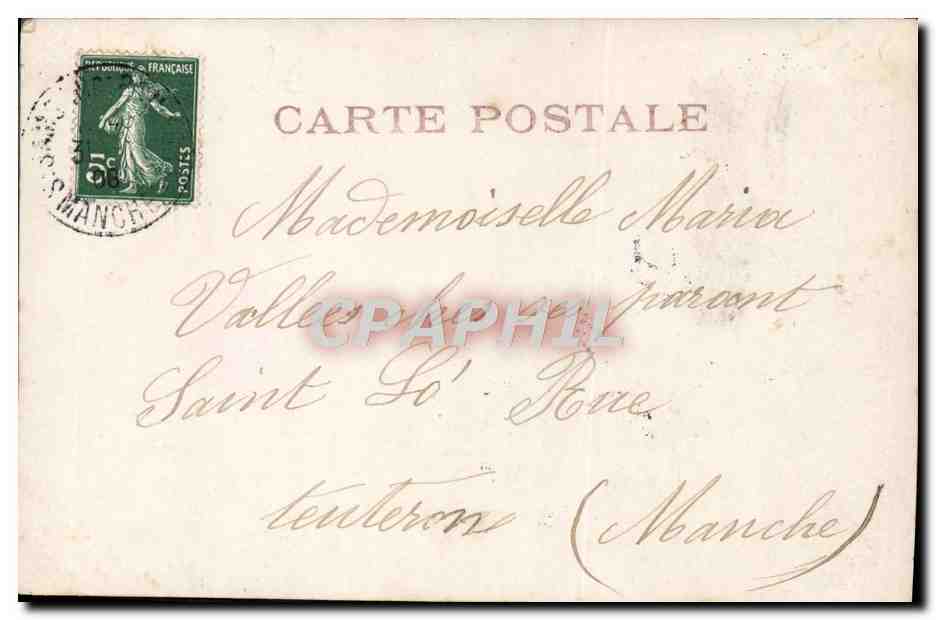 RÉPUBLIQUE FRANÇAISE
5c
POSTES
31
08
MANCHE
CARTE POSTALE
Mademoiselle Maria
Vallées ches ses parant
Saint Lô Rue
teuteron (Manche)
CPAPHIL